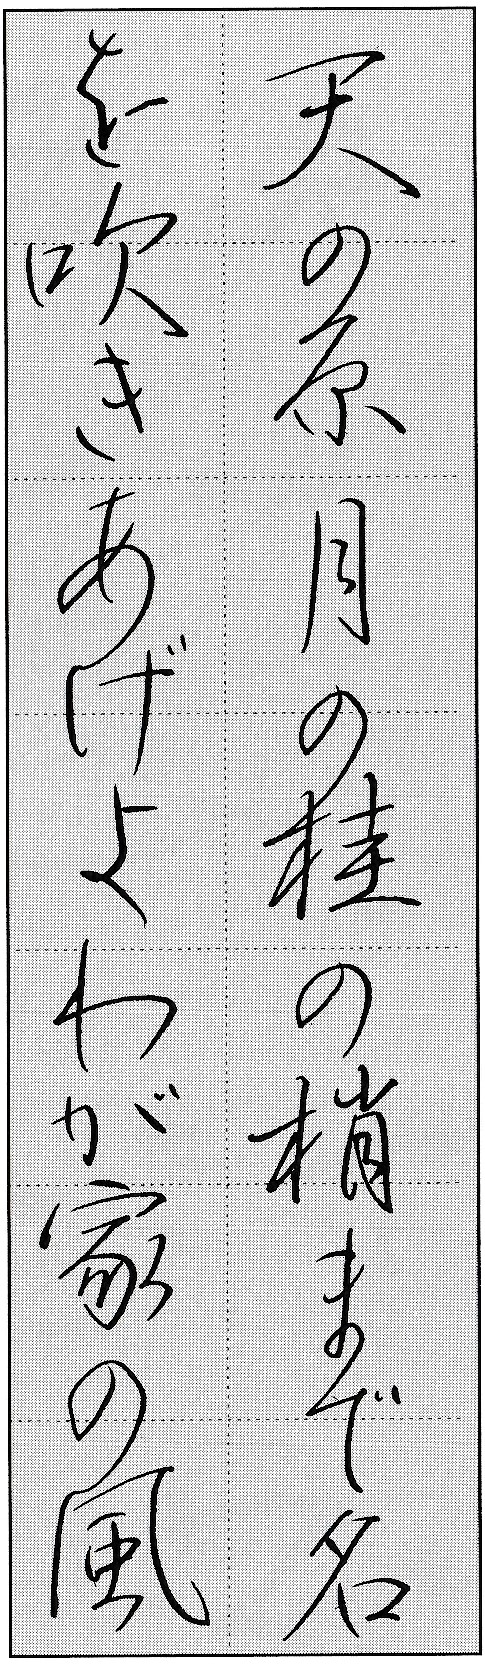 天の原月の桂の梢まで名
を吹きあげよわが家の風